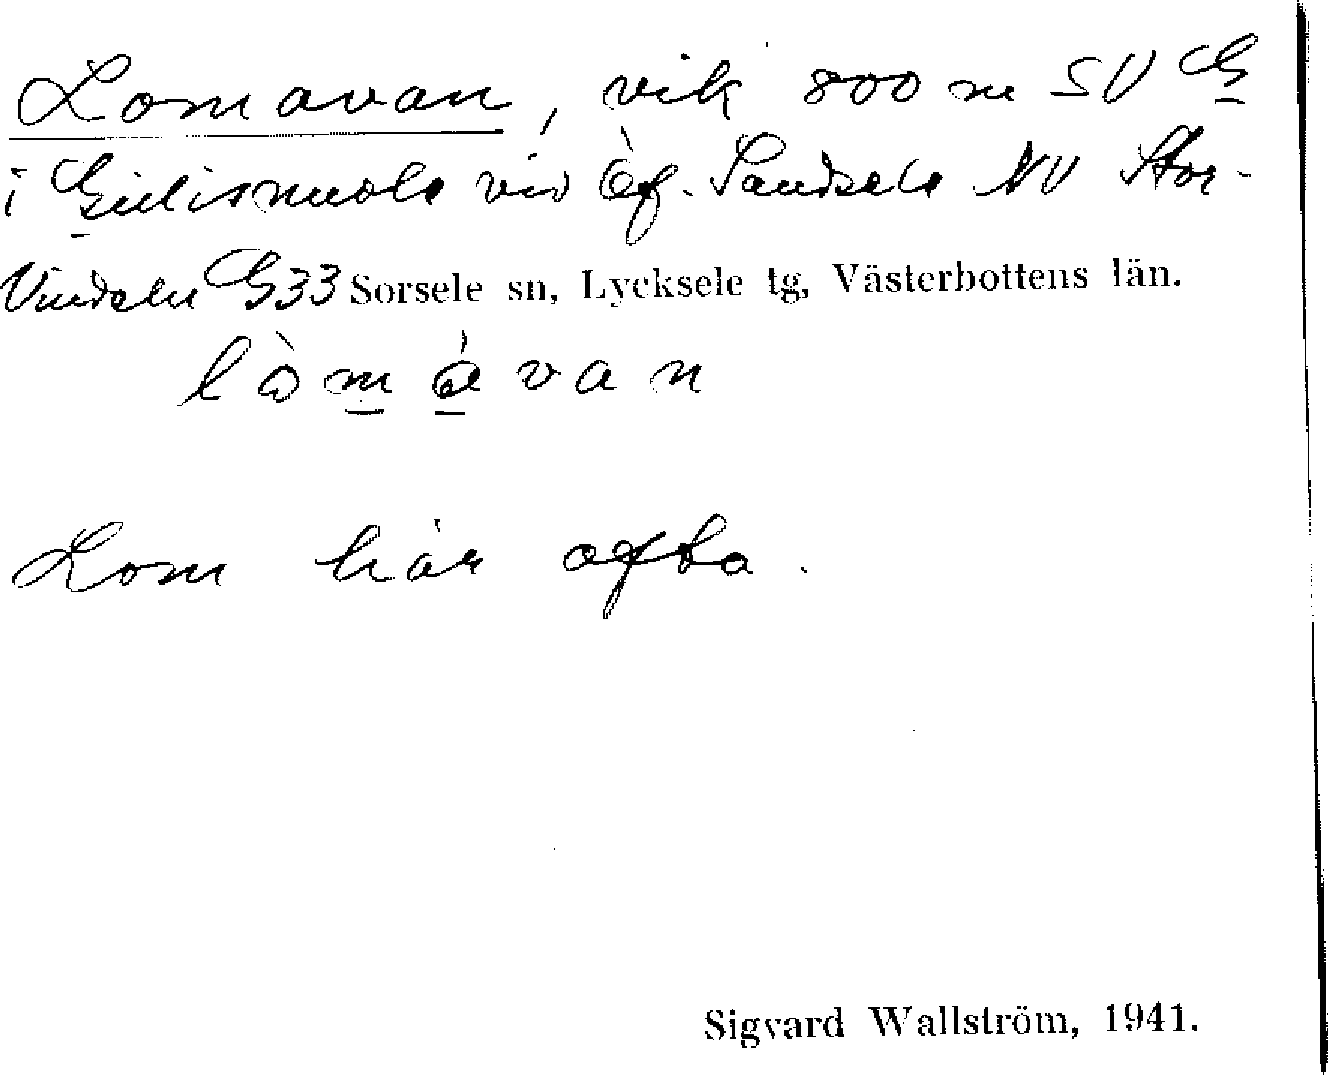 Lomavan, vik 800 m SV G
i Giilisnuole vid öf. Sandsele NV Stor-
Vindeln G33 Sorsele sn, Lycksele tg, Västerbottens län.
lòmávan
Lom här ofta.
Sigvard Wallström, 1941.